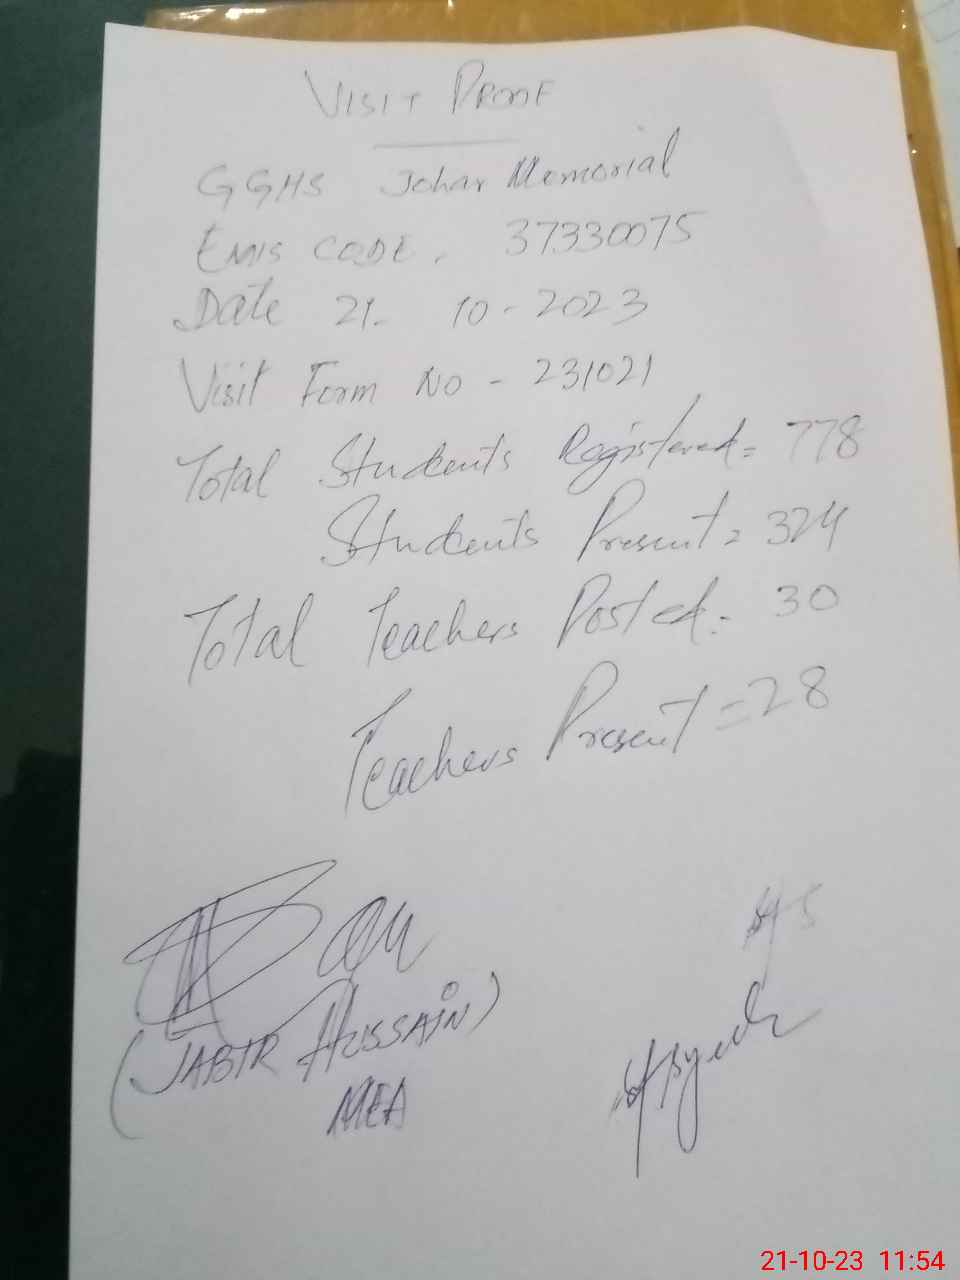 VISIT PROOF
GGHS Johar Memorial
EMIS CODE. 37330075
Date 21- 10-2023
Visit Form No - 231021
Total Students Registered = 778
Students Present = 324
Total Teachers Posted = 30
Teachers Present = 28
(JABIR HUSSAIN)
MEA
21-10-23 11:54